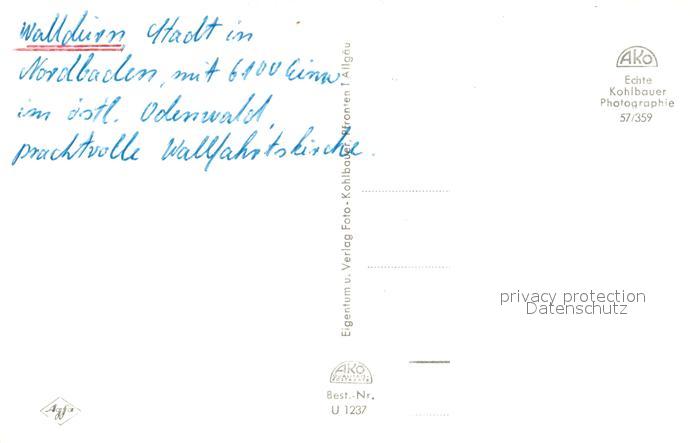 Walldürn, Stadt in
Nordbaden, mit 6100 Einw
im östl. Odenwald,
prachtvolle Wallfahrtskirche.
Eigentum u. Verlag Foto-Kohlbauer, Pfronten / Allgäu
AKO
Echte
Kohlbauer
Photographie
57/359
privacy protection
Datenschutz
AKO
Best.-Nr.
U 1237
Agfa